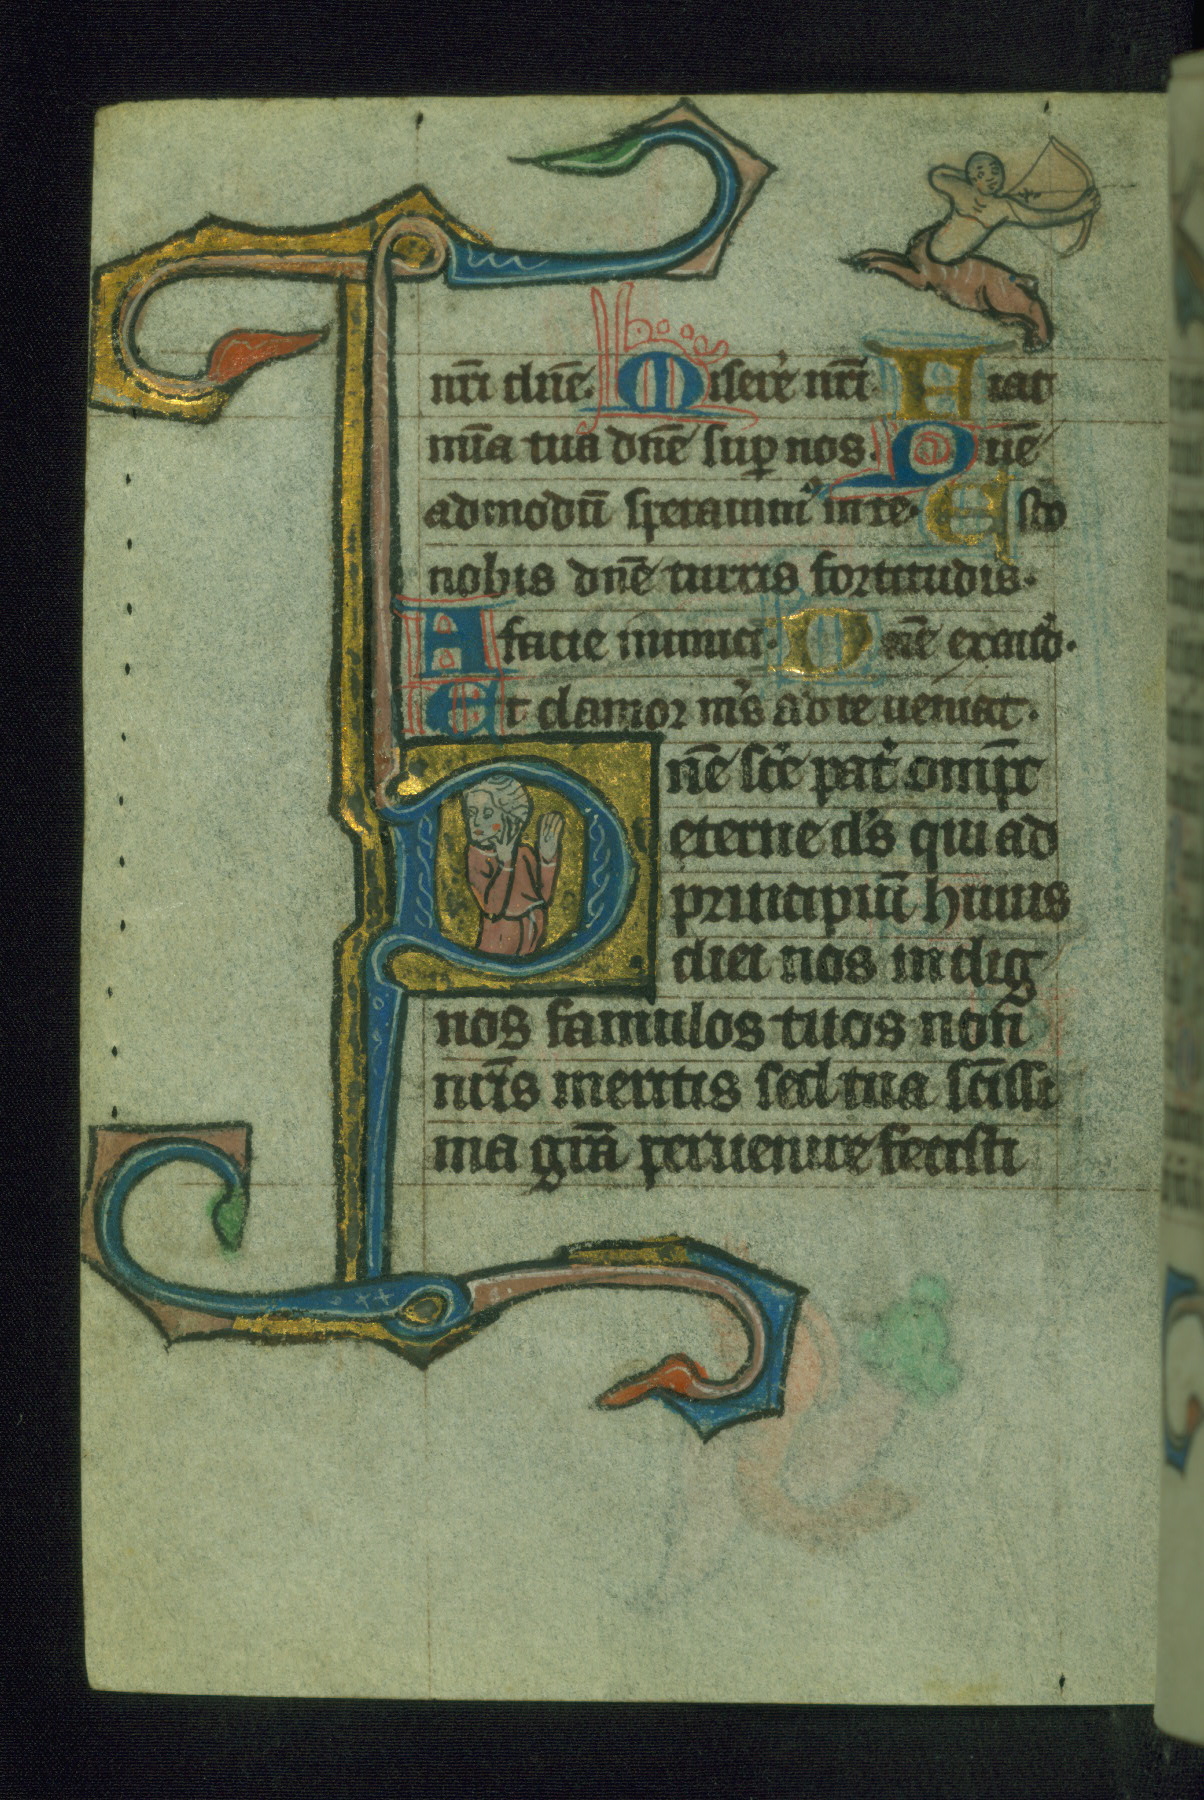 nr̄i dn̄e. Miser̉e nr̄i. Fiat
mīa tua dn̄e suꝑ nos. Quē
admodū sperauimꝰ in te. Esto
nobis dn̄e turris fortitudis.
A facie inimici. Dn̄e exaud̉.
Et clamor mꝰs ad te ueniat.
Dn̄e sc̄e pat̉ omīps
eterne ds̉ qui ad
principiū huius
diei nos indig
nos famulos tuos non
nr̄is meritis sed tua sc̄issi
ma gr̄a peruenire fecisti